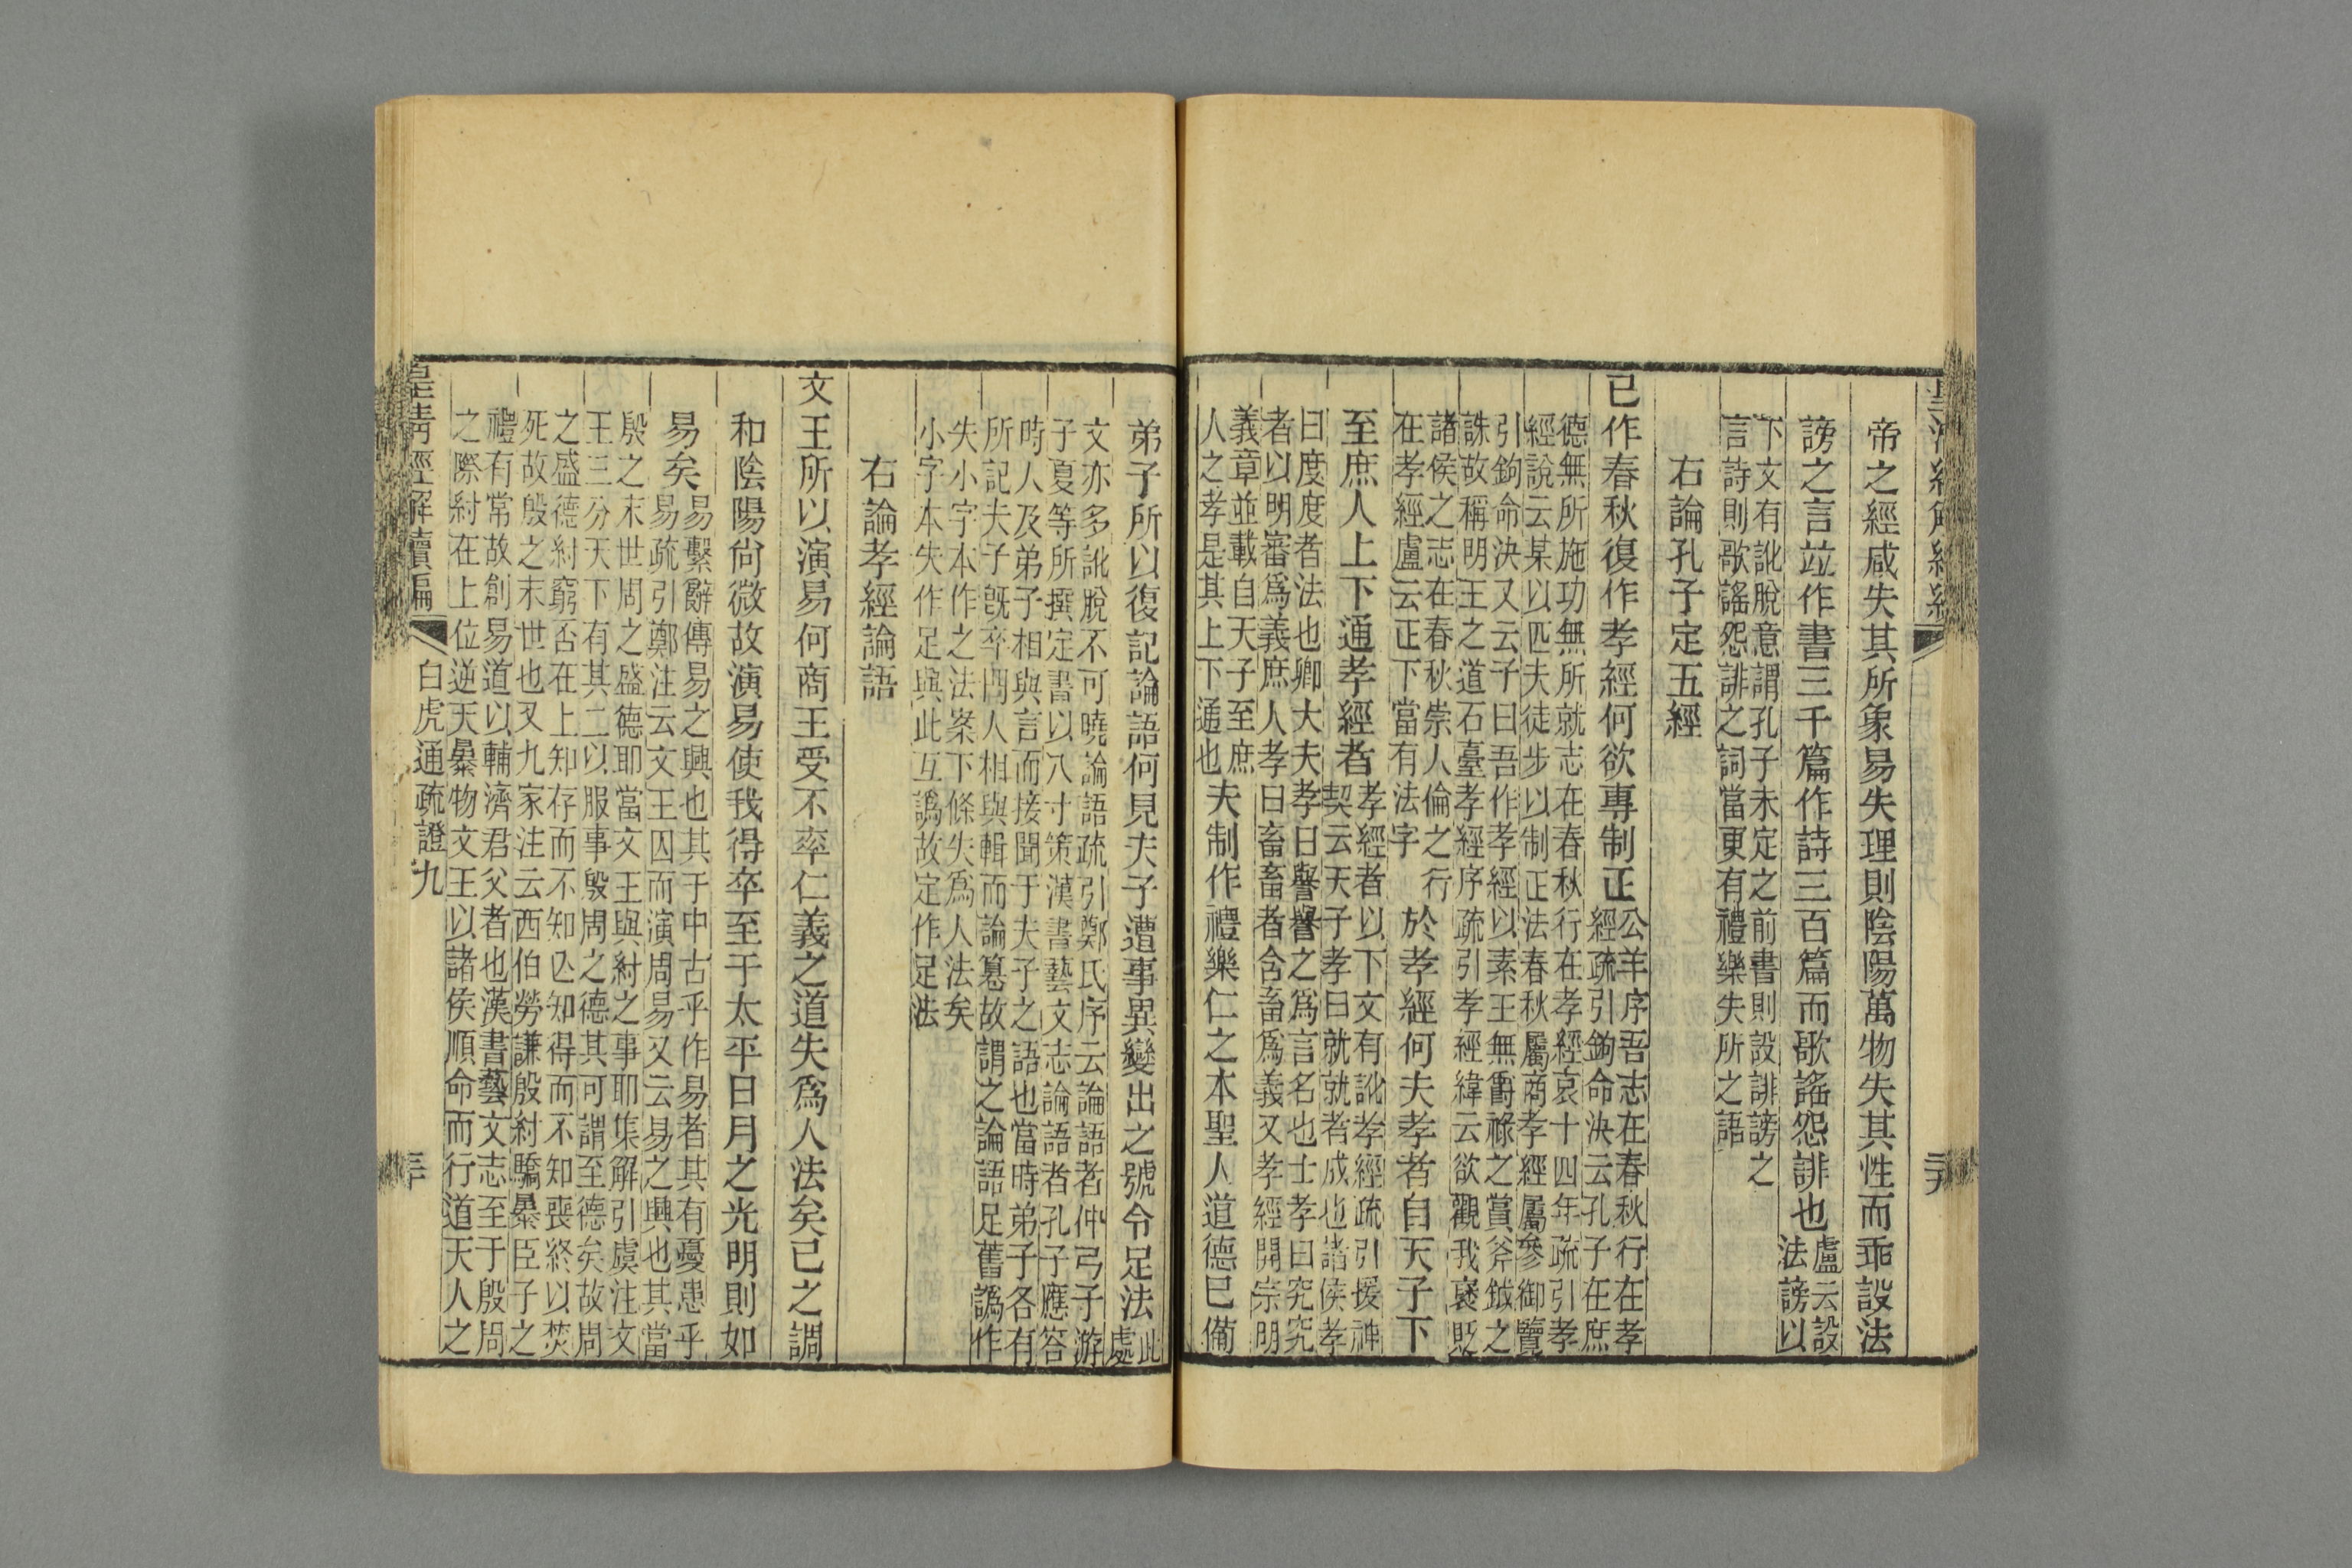 帝之經咸失其所象易失理則陰陽萬物失其性而乖設法
謗之言竝作書三千篇作詩三百篇而歌謠怨誹也
盧云設
法謗以
下文有訛脫意謂孔子未定之前書則設誹謗之
言詩則歌謠怨誹之詞當更有禮樂失所之語
右論孔子定五經
已作春秋復作孝經何欲專制正
公羊序吾志在春秋行在孝
經疏引鉤命決云孔子在庶
德無所施功無所就志在春秋行在孝經哀十四年疏引孝
經說云某以匹夫徒步以制正法春秋屬商孝經屬參御覽
引鉤命決又云子曰吾作孝經以素王無爵祿之賞斧鉞之
誅故稱明王之道石臺孝經序疏引孝經緯云欲觀我褒貶
諸侯之志在春秋崇人倫之行
在孝經盧云正下當有法字
於孝經何夫孝者自天子下
至庶人上下通孝經者
孝經者以下文有訛孝經疏引援神
契云天子孝曰就就者成也諸侯孝
曰度度者法也卿大夫孝曰譽譽之爲言名也士孝曰究究
者以明審爲義庶人孝曰畜畜者含畜爲義又孝經開宗明
義章並載自天子至庶
人之孝是其上下通也
夫制作禮樂仁之本聖人道德已備
弟子所以復記論語何見夫子遭事異變出之號令足法
此
處
文亦多訛脫不可曉論語疏引鄭氏序云論語者仲弓子游
子夏等所撰定書以八寸策漢書藝文志論語者孔子應答
時人及弟子相與言而接聞于夫子之語也當時弟子各有
所記夫子旣卒門人相與輯而論篹故謂之論語足舊譌作
失小字本作之法案下條失爲人法矣
小字本失作足與此互譌故定作足法
右論孝經論語
文王所以演易何商王受不率仁義之道失爲人法矣已之調
和陰陽尙微故演易使我得卒至于太平日月之光明則如
易矣
易繫辭傳易之興也其于中古乎作易者其有憂患乎
易疏引鄭注云文王囚而演周易又云易之興也其當
殷之末世周之盛德耶當文王與紂之事耶集解引虞注文
王三分天下有其二以服事殷周之德其可謂至德矣故周
之盛德紂窮否在上知存而不知亾知得而不知喪終以焚
死故殷之末世也又九家注云西伯勞謙殷紂驕暴臣子之
禮有常故創易道以輔濟君父者也漢書藝文志至于殷周
之際紂在上位逆天暴物文王以諸侯順命而行道天人之
皇淸經解續編
白虎通疏證九
三十